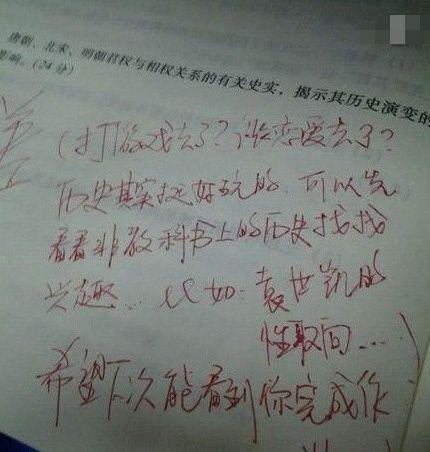 唐朝、北宋、明朝君权与相权关系的有关史实，揭示其历史演变的
影响。（24分）
差
（打游戏去了？谈恋爱去了？
历史其实挺好玩的，可以先
看看非教科书上的历史找找
兴趣...比如：袁世凯的
性取向....）
希望下次能看到你完成作